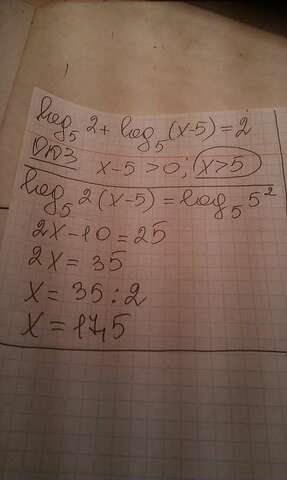 log₅ 2 + log₅ (x-5) = 2
ОДЗ x-5 > 0; x > 5
log₅ 2(x-5) = log₅ 5²
2x-10 = 25
2x = 35
x = 35 : 2
x = 17,5